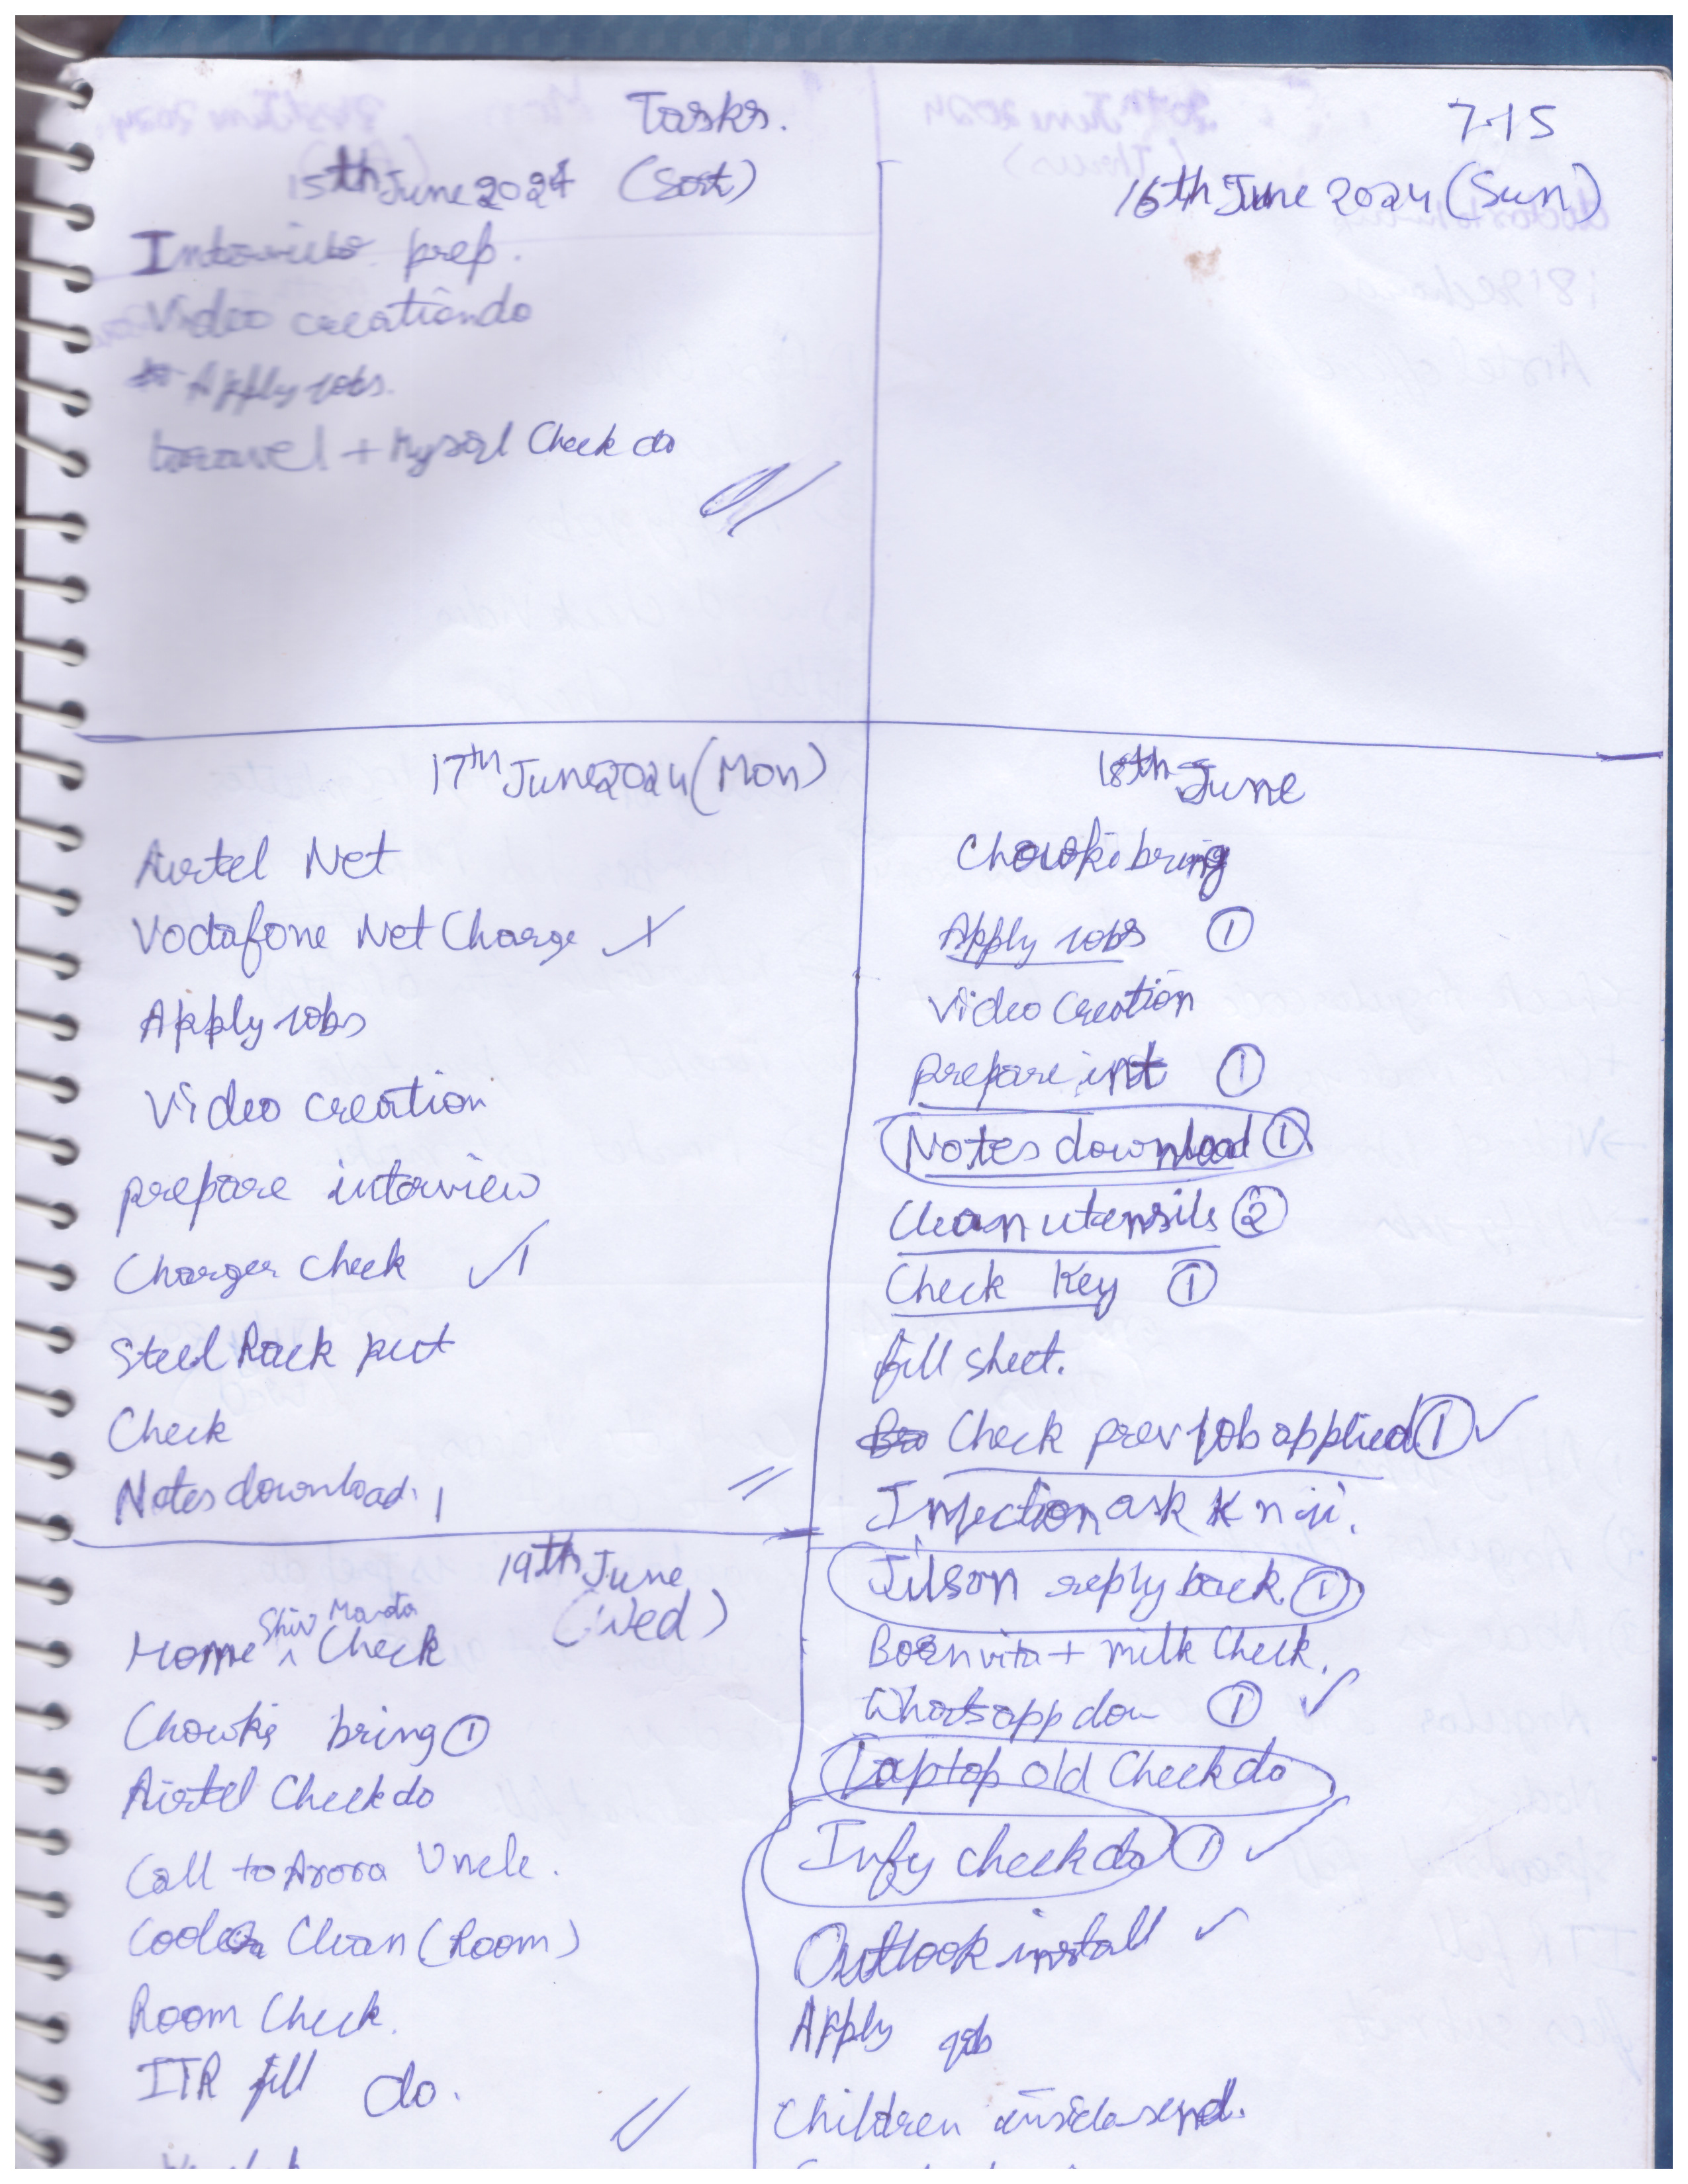 Tasks.
7.15
15th June 2024 (Sat)
Interview prep.
Video creation do
Apply jobs.
Laravel + Mysql Check do
16th June 2024 (Sun)
17th June 2024 (Mon)
Airtel Net
Vodafone Net Charge
Apply jobs
Video creation
prepare interview
Charger check
Steel Rack put
Check
Notes download. 1
18th June
Chowki bring
Apply jobs 1
Video Creation
prepare int 1
Notes download 1
Clean utensils 2
Check Key 1
fill sheet.
Check prev job applied 1
Injection ask K n ji.
Jilson reply back. 1
Boenvita + milk Check.
Whatsapp dow 1
Laptop old Check do
Infy check do 1
Outlook install
Apply job
Children inside send.
19th June
(Wed)
Home Shiv Manda Check
Chowki bring 1
Airtel Check do
Call to Arora Uncle.
Cooler Clean (Room)
Room Check.
ITR fill do.